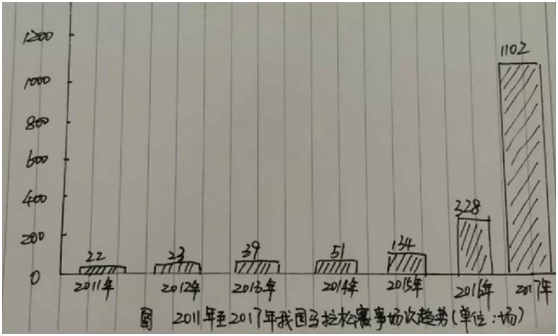 1200
1000
800
600
400
200
0
22
23
39
51
134
328
1102
2011年
2012年
2013年
2014年
2015年
2016年
2017年
图 2011年至2017年我国马拉松赛事场次趋势(单位:场)